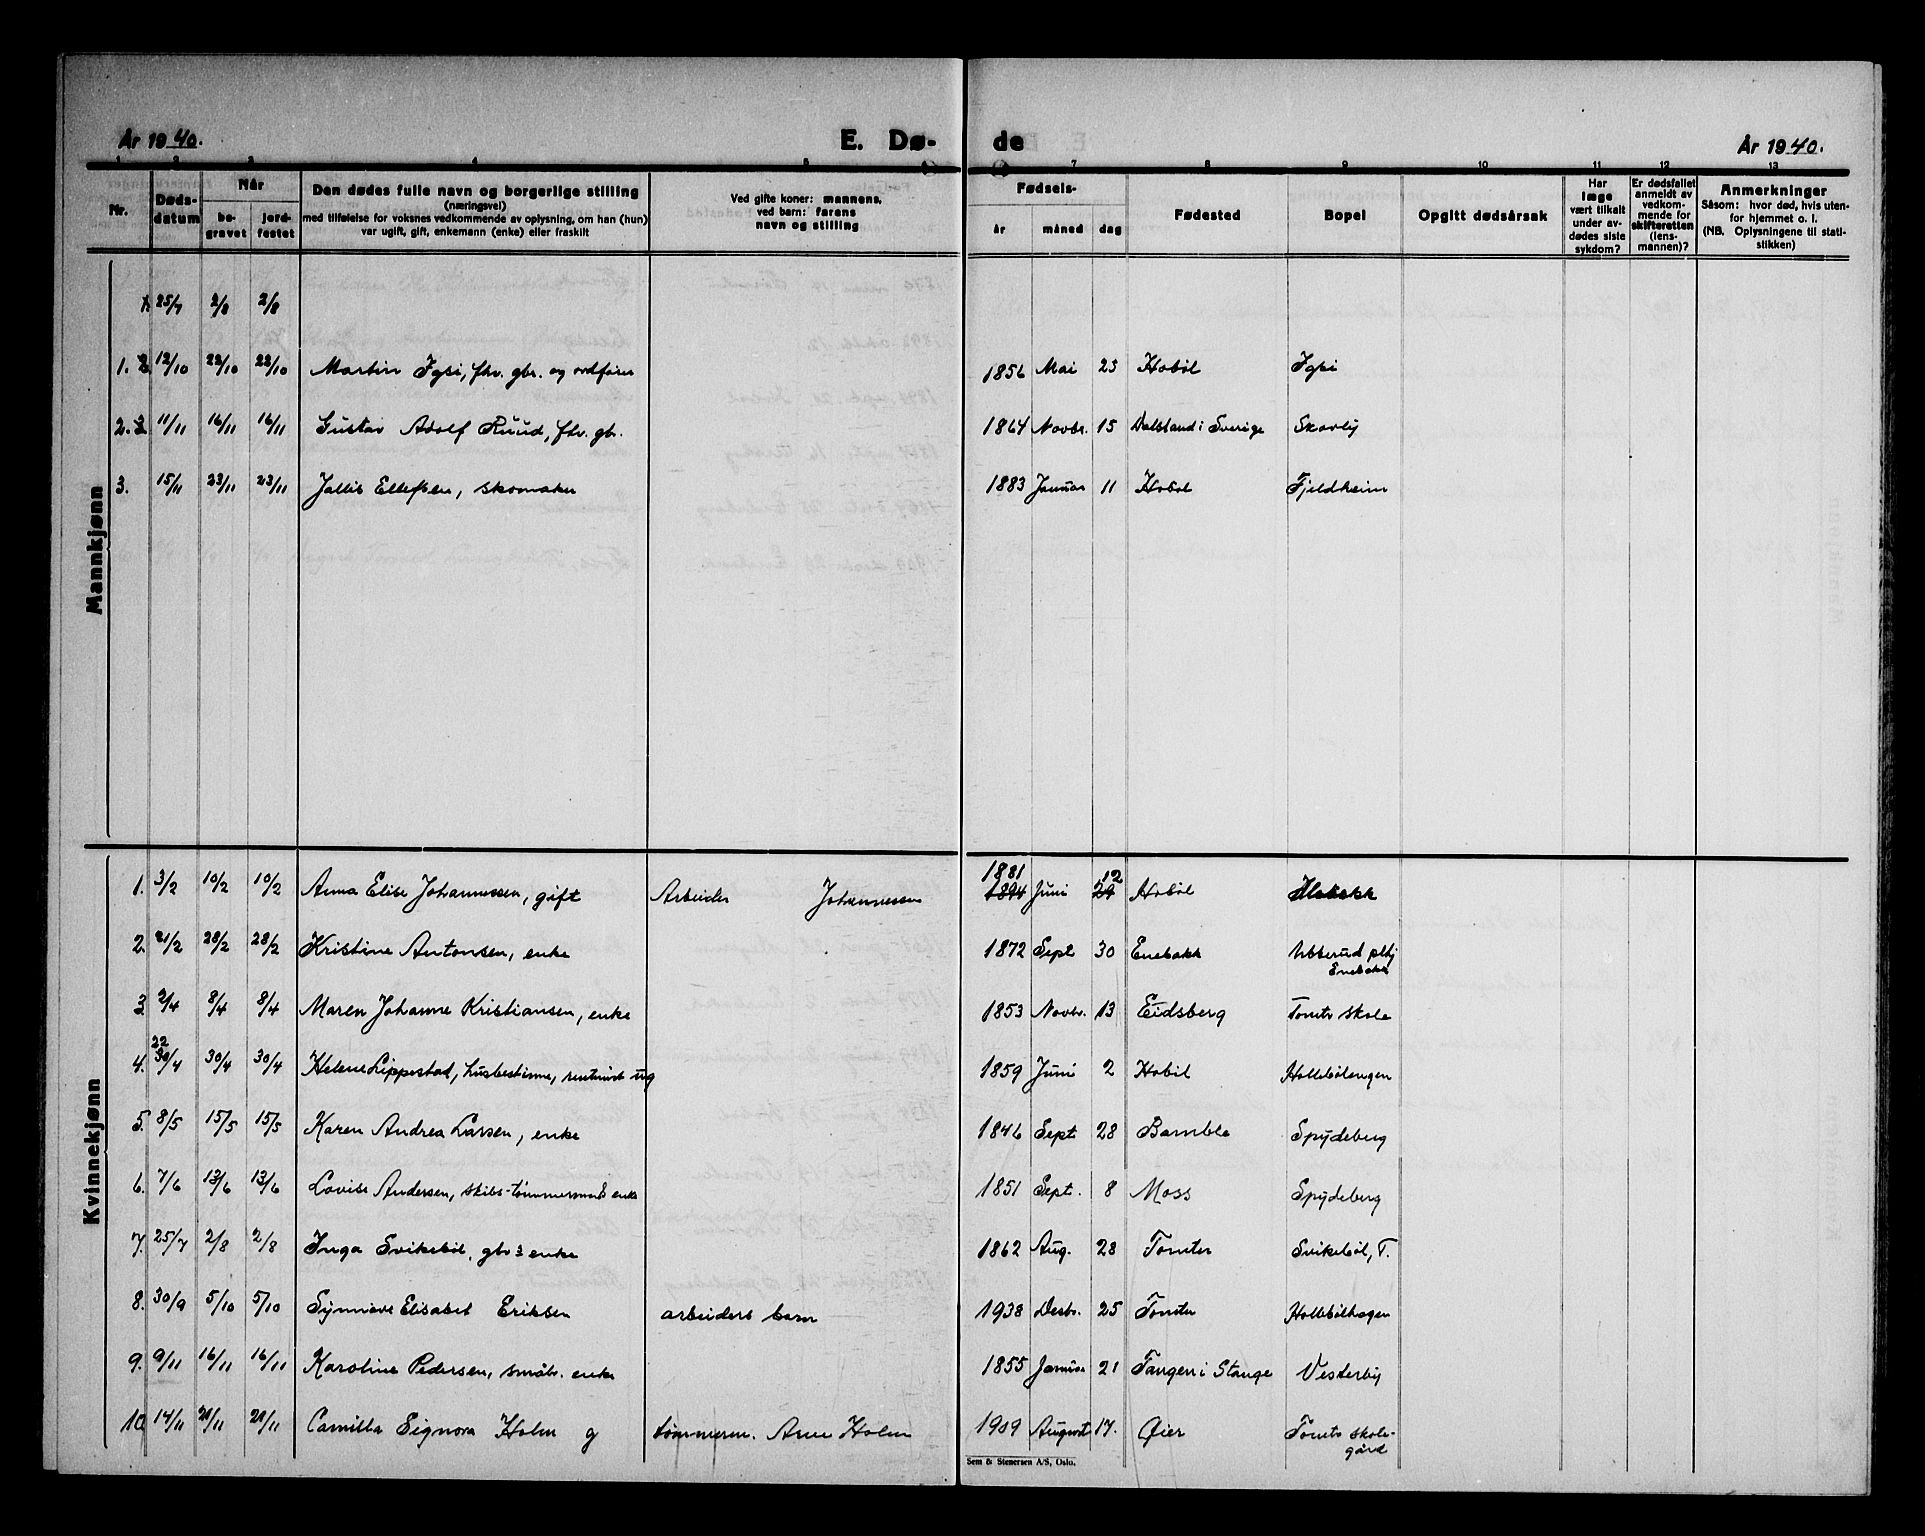 År 1940. E. Dø- de År 1940.
1 2 3 4 5 7 8 9 10 11 12 13
Nr. Døds-datum Når be-gravet jord-festet Den dødes fulle navn og borgerlige stilling (næringsvei) med tilføielse for voksnes vedkommende av oplysning, om han (hun) var ugift, gift, enkemann (enke) eller fraskilt Ved gifte koner: mannens, ved barn: farens navn og stilling Fødsels- år måned dag Fødested Bopel Opgitt dødsårsak Har læge vært tilkalt under av-dødes siste sykdom? Er dødsfallet anmeldt av vedkom-mende for skifteretten (lens-mannen)? Anmerkninger Såsom: hvor død, hvis uten-for hjemmet o. l. (NB. Oplysningene til stati-stikken)
Mannkjønn
1. 25/7 2/8 2/8
1. 2 12/10 22/10 22/10 Martin Igsi, fhv. gbr. og ordfører 1856 Mai 25 Hobøl Igsi
2. 3 11/11 16/11 16/11 Gustav Adolf Ruud, fhv. gbr. 1864 Novbr. 15 Dalsland i Sverige Skovly
3. 15/11 23/11 23/11 Jallis Ellefsen, skomaker 1883 Januar 11 Hobøl Fjeldheim
Kvinnekjønn
1. 3/2 10/2 10/2 Anna Elise Johannessen, gift Arbeider Johannessen 1894 1881 Juni 29 12 Hobøl
2. 21/2 28/2 28/2 Kristine Antonsen, enke 1872 Sept 30 Enebakk Ubberud plhj Enebakk
3 2/4 8/4 8/4 Maren Johanne Kristiansen, enke 1853 Novbr. 13 Eidsberg Tomter skole
4. 30/4 22 30/4 30/4 Helene Lippestad, husbestinne, ug 1859 Juni 2 Hobøl Hollebølengen
5. 8/5 15/5 15/5 Karen Andrea Larsen, enke 1846 Sept 28 Bamble Spydeberg
6. 7/6 13/6 13/6 Lovise Andersen, skibs-tømmermans enke 1851 Sept. 8 Moss Spydeberg
7. 25/7 2/8 2/8 Inga Svikebøl, gbr.s enke 1862 Aug. 28 Tomter Svikebøl, T.
8. 30/9 5/10 5/10 Synnøve Elisabet Eriksen arbeiders barn 1938 Desbr. 25 Tomter Hollebølhagen
9. 9/11 16/11 16/11 Karoline Pedersen, småbr. enke 1855 Januar 21 Tangen i Stange Vesterby
10 14/11 21/11 21/11 Camilla Signora Holm g tømmerm. Arne Holm 1909 August 17. Øier Tomter skole-gård
Sem & Stenersen A/S, Oslo.